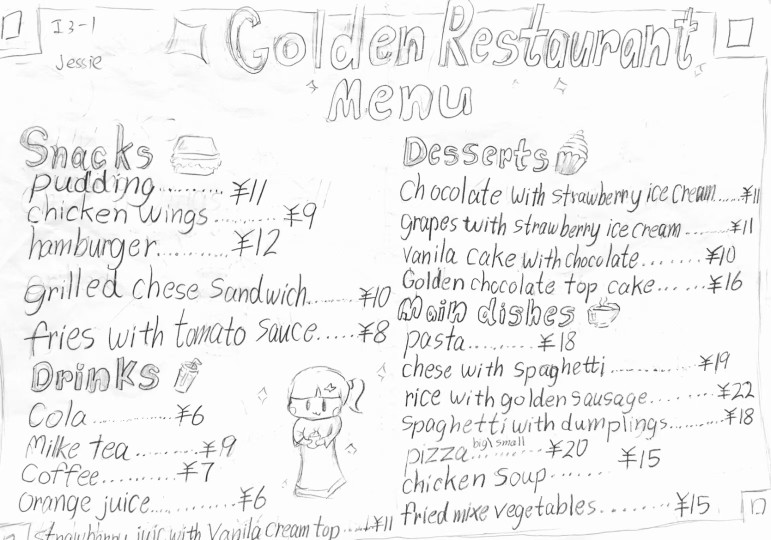 I3-1
Jessie
Golden Restaurant
Menu
Snacks
pudding.........¥11
chicken wings.........¥9
hamburger..........¥12
Grilled chese sandwich.......¥10
fries with tomato sauce.....¥8
Drinks
Cola..............¥6
Milke tea.........¥9
Coffee.........¥7
Orange juice............¥6
Strawberry juic with Vanila cream top.....¥11
Desserts
Chocolate with strawberry ice cream.....¥11
grapes with strawberry ice cream.......¥11
Vanila cake with chocolate........¥10
Golden chocolate top cake......¥16
Main dishes
pasta.........¥18
chese with spaghetti..........¥19
rice with golden sausage........¥22
Spaghetti with dumplings.........¥18
pizza big\small.........¥20
chicken soup........¥15
fried mixe vegetables.........¥15